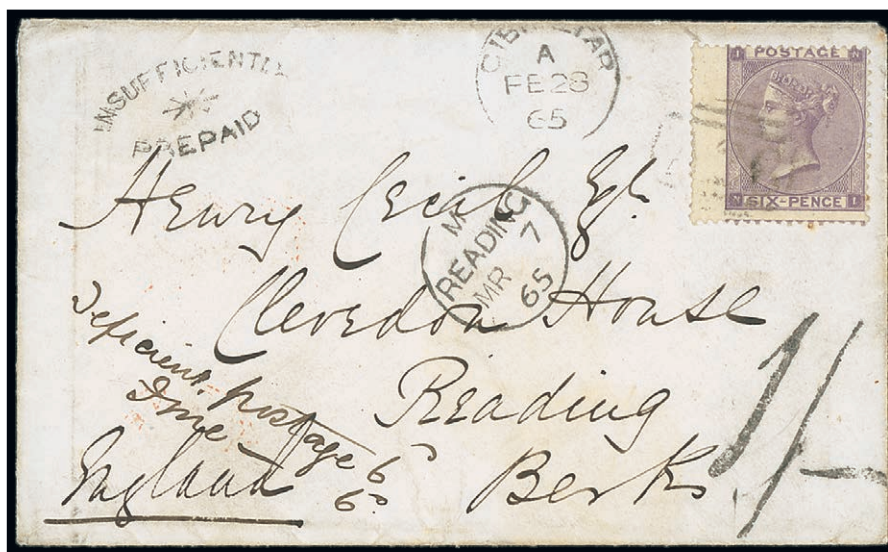 INSUFFICIENTLY
PREPAID
GIBRALTAR
A
FE 28
65
POSTAGE
SIX-PENCE
Henry Cecil Esqr
M
READING
MR 7
65
Clevedon House
Reading
Berks
England
Deficient postage 6d
Fine 6d
1/-